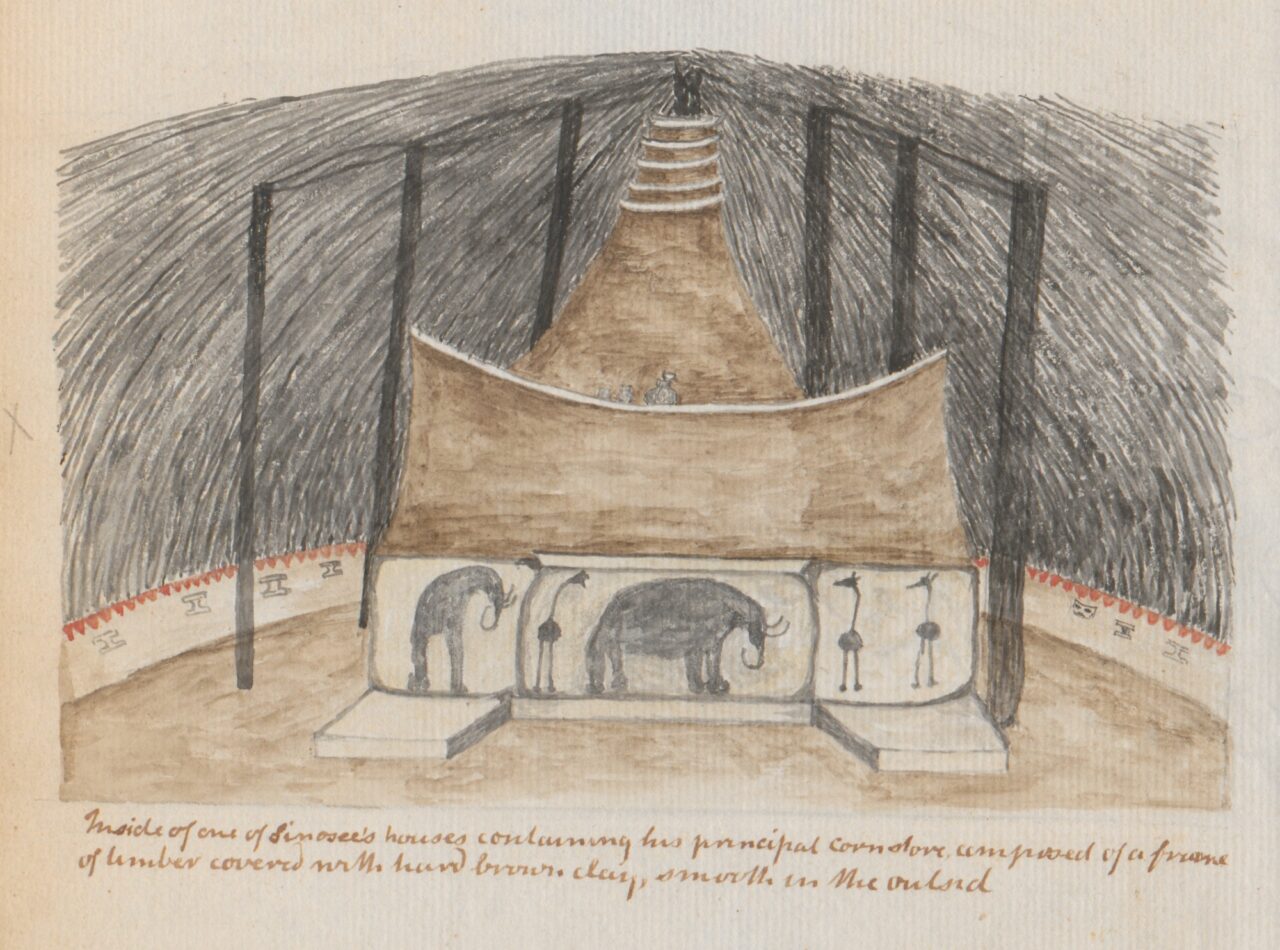 Inside of one of Sinosee's houses containing his principal corn store, composed of a frame
of timber covered with hard brown clay, smooth in the outsid